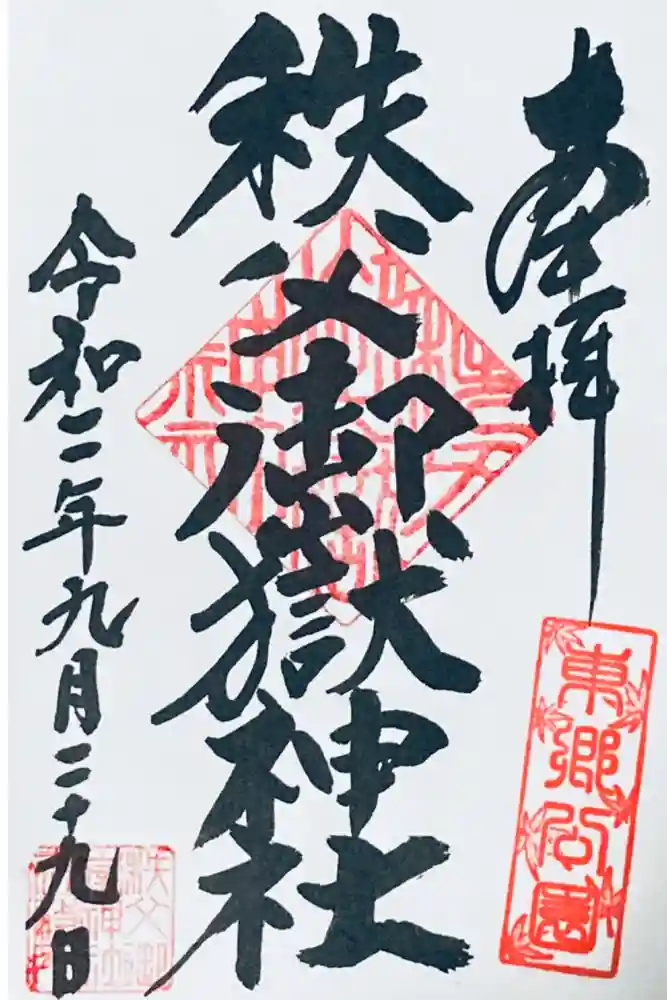 奉拝
東郷公園
秩父御嶽神社
令和二年九月二十九日